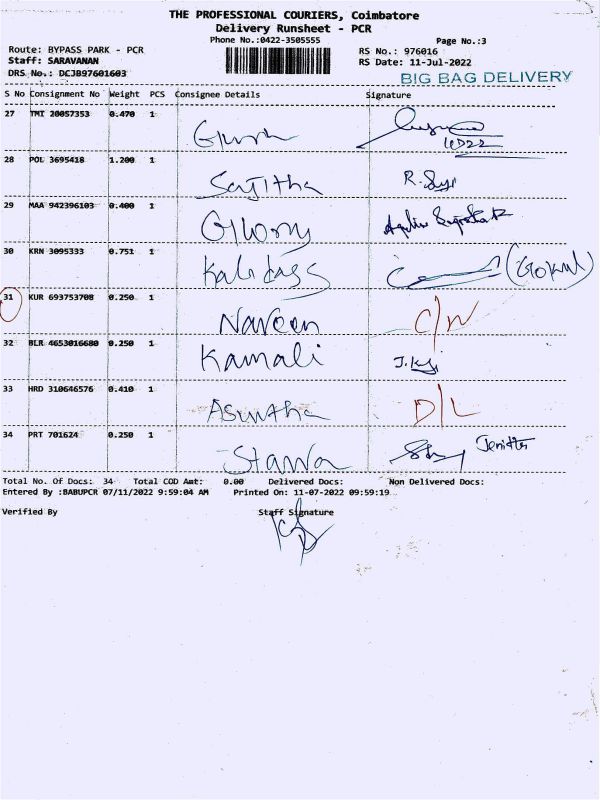 THE PROFESSIONAL COURIERS, Coimbatore
Delivery Runsheet - PCR
Phone No.:0422-3505555
Page No.:3
Route: BYPASS PARK - PCR
RS No.: 976016
Staff: SARAVANAN
RS Date: 11-Jul-2022
DRS No.: DCJB97601603
BIG BAG DELIVERY
S No Consignment No Weight PCS Consignee Details Signature
27 TMI 20057353 0.470 1
28 POL 3695418 1.200 1 Sajitha
29 MAA 942396103 0.400 1
30 KRN 3095333 0.751 1 Kalidass (Gokul)
31 KUR 693753708 0.250 1 Naveen C/N
32 BLR 4653016680 0.250 1 Kamali
33 HRD 310646576 0.410 1 D/L
34 PRT 701624 0.250 1
Total No. Of Docs: 34 Total COD Amt: 0.00 Delivered Docs: Non Delivered Docs:
Entered By :BABUPCR 07/11/2022 9:59:04 AM Printed On: 11-07-2022 09:59:19
Verified By Staff Signature